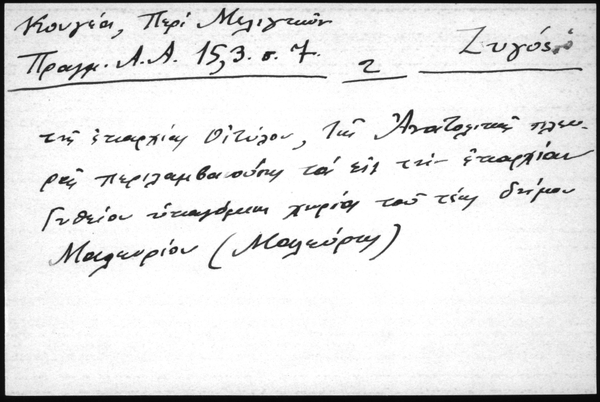 Κουγέα, Περί Μελιγκῶν
Πραγμ. Α.Α. 15,3. σ. 7. 2 Ζυγός, ὁ
τῆς ἐπαρχίας Οἰτύλου, τῆς Ἀνατολικῆς πλευ-
ρᾶς περιλαμβανούσης τά εἰς τήν ἐπαρχίαν
Γυθείου ὑπαγόμενα χωρία τοῦ τέως δήμου
Μαλευρίου (Μαλεύρης)